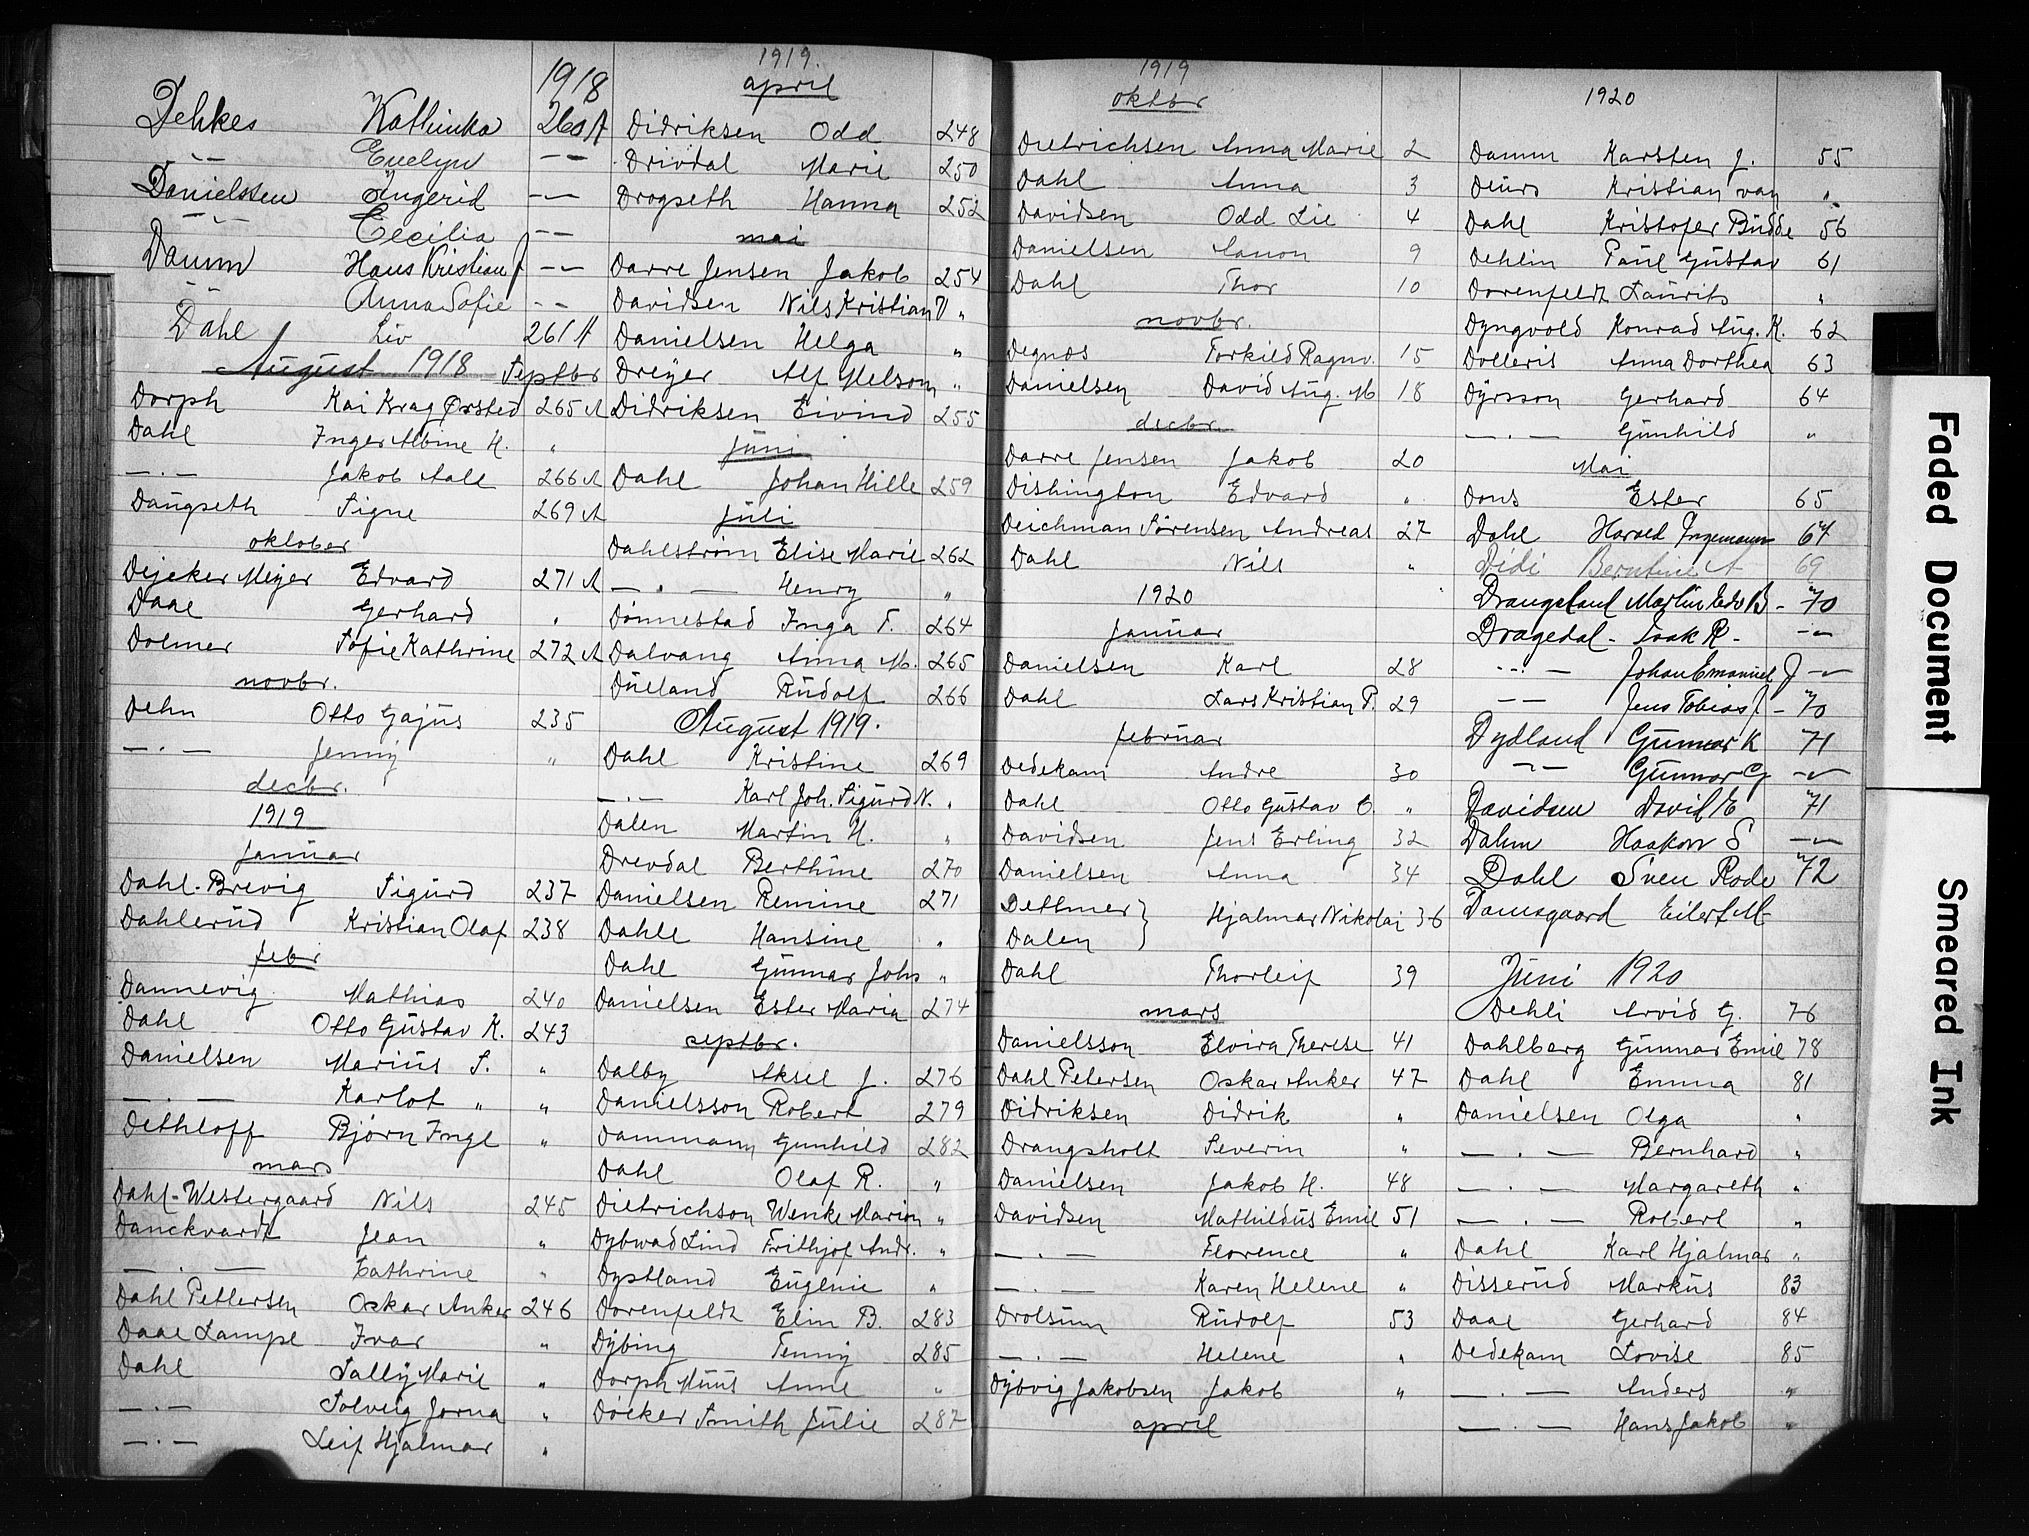 1918
Dehkes Kathinka 260 A
-- Evelyn --
Danielssen Ingerid --
-- Cecilia --
Damm Hans Kristian J --
-- Anna Sofie --
Dahl Liv 261 A
August 1918 Septbr
Dorph Kai Krag Ørsted 265 A
Dahl Inger Albine H. "
—.— Jakob Aall 266 A
Daugseth Signe 269 A
oktober
Dejeker Meyer Edvard 271 A
Daae Gerhard "
Dolmer Sofie Kathrine 272 A
novbr.
Dehn Otto Gajus 235
—.— Jenny "
decbr.
1919
Januar
Dahl-Brevig Sigurd 237
Dahlerud Kristian Olaf 238
febr
Dannevig Mathias 240
Dahl Otto Gustav K. 243
Danielsen Marius S. "
—.— Karlot " "
Dethloff Bjørn Inge "
mars
Dahl-Westergaard Nils 245
Danckvardt Jean "
—.— Cathrine "
Dahl Pettersen Oskar Anker 246
Daae Lampe Ivar "
Dahl Sally Marie "
—.— Solveig Jorna "
—.— Leif Hjalmar "
1919.
april
Didriksen Odd 248
Drivdal Marie 250
Drogseth Hanna 252
mai
Darre Jensen Jakob 254
Davidsen Nils Kristian V "
Danielsen Helga "
Dreyer Alf Melsom "
Didriksen Eivind 255
juni
Dahl Johan Hille 259
juli
Dahlstrøm Elise Marie 262
—.— Henry "
Dønnestad Inga T. 264
Dalvang Anna M. 265
Dueland Rudolf 266
August 1919.
Dahl Kristine 269
—.— Karl Joh. Sigurd N. "
Dalen Martin H. "
Drevdal Berthine 270
Danielsen Remine 271
Dahle Hansine "
Dahl Gunnar Johs "
Danielsen Ester Maria 274
septbr.
Dalby Aksel J. 276
Danielsson Robert 279
Dammann Gunhild 282
Dahl Olaf R. "
Dietrichson Wenke Marion "
Dybwad Lind Frithjof Andr. "
Dystland Eugenie "
Dorenfeldt Elin B. 283
Dybing Tenny 285
Dorph Muus Anne "
Døcker Smith Julie 287
1919
oktbr
Dietrichsen Anna Marie 2
Dahl Anna 3
Davidsen Odd Lie 4
Danielsen Aanon 9
Dahl Thor 10
novbr.
Degnæs Torkild Ragnv. 15
Danielsen David Aug. M 18
decbr.
Darre Jensen Jakob 20
Dishington Edvard "
Deichman Sørensen Andreas 27
Dahl Nils "
1920
Januar
Danielsen Karl 28
Dahl Lars Kristian P. 29
februar
Dedekam Andre 30
Dahl Otto Gustav C. "
Davidsen Jens Erling 32
Danielsen Anna 34
Dettmer }
Dalen } Hjalmar Nikolai 36
Dahl Thorleif 39
mars
Danielsson Elvira Therese 41
Dahl Petersen Oskar Anker 47
Didriksen Didrik "
Drangsholt Severin "
Danielsen Jakob H. 48
Davidsen Mathildus Emil 51
—.— Florence "
—.— Karen Helene "
Drolsum Rudolf 53
—.— Helene "
Dybvig Jakobsen Jakob "
april
1920
Damm Karsten J. 55
Deurs Kristian van "
Dahl Kristofer Budde 56
Dehlin Paul Gustav 61
Dorenfeldt Laurits "
Dyngvold Konrad Aug. K. 62
Dolleris Anna Dorthea 63
Dyrsson Gerhard 64
—.— Gunhild "
Mai
Dons Ester 65
Dahl Harald Ingemann 67
Didi Berntine A 69
Drangsland Martin Edv B - 70
Dragedal - Isak R - --
--- Johan Emanuel J --
-- Jens Tobias J. - 70
Dydland Gunnar K 71
-- Gunnar G --
Davidsen David E 71
Dahm Haakon S --
Dahl Sven Rode 72
Damsgaard Eilert M-
Juni 1920
Dehli Arvid G. 76
Dahlberg Gunnar Emil 78
Dahl Emma 81
Danielsen Olga "
—.— Bernhard "
—.— Margareth "
—.— Robert "
Dahl Karl Hjalmar "
Disserud Markus 83
Daae Gerhard 84
Dedekam Lovise 85
—.— Anders "
—.— Hans Jakob "
Faded Document
Smeared Ink